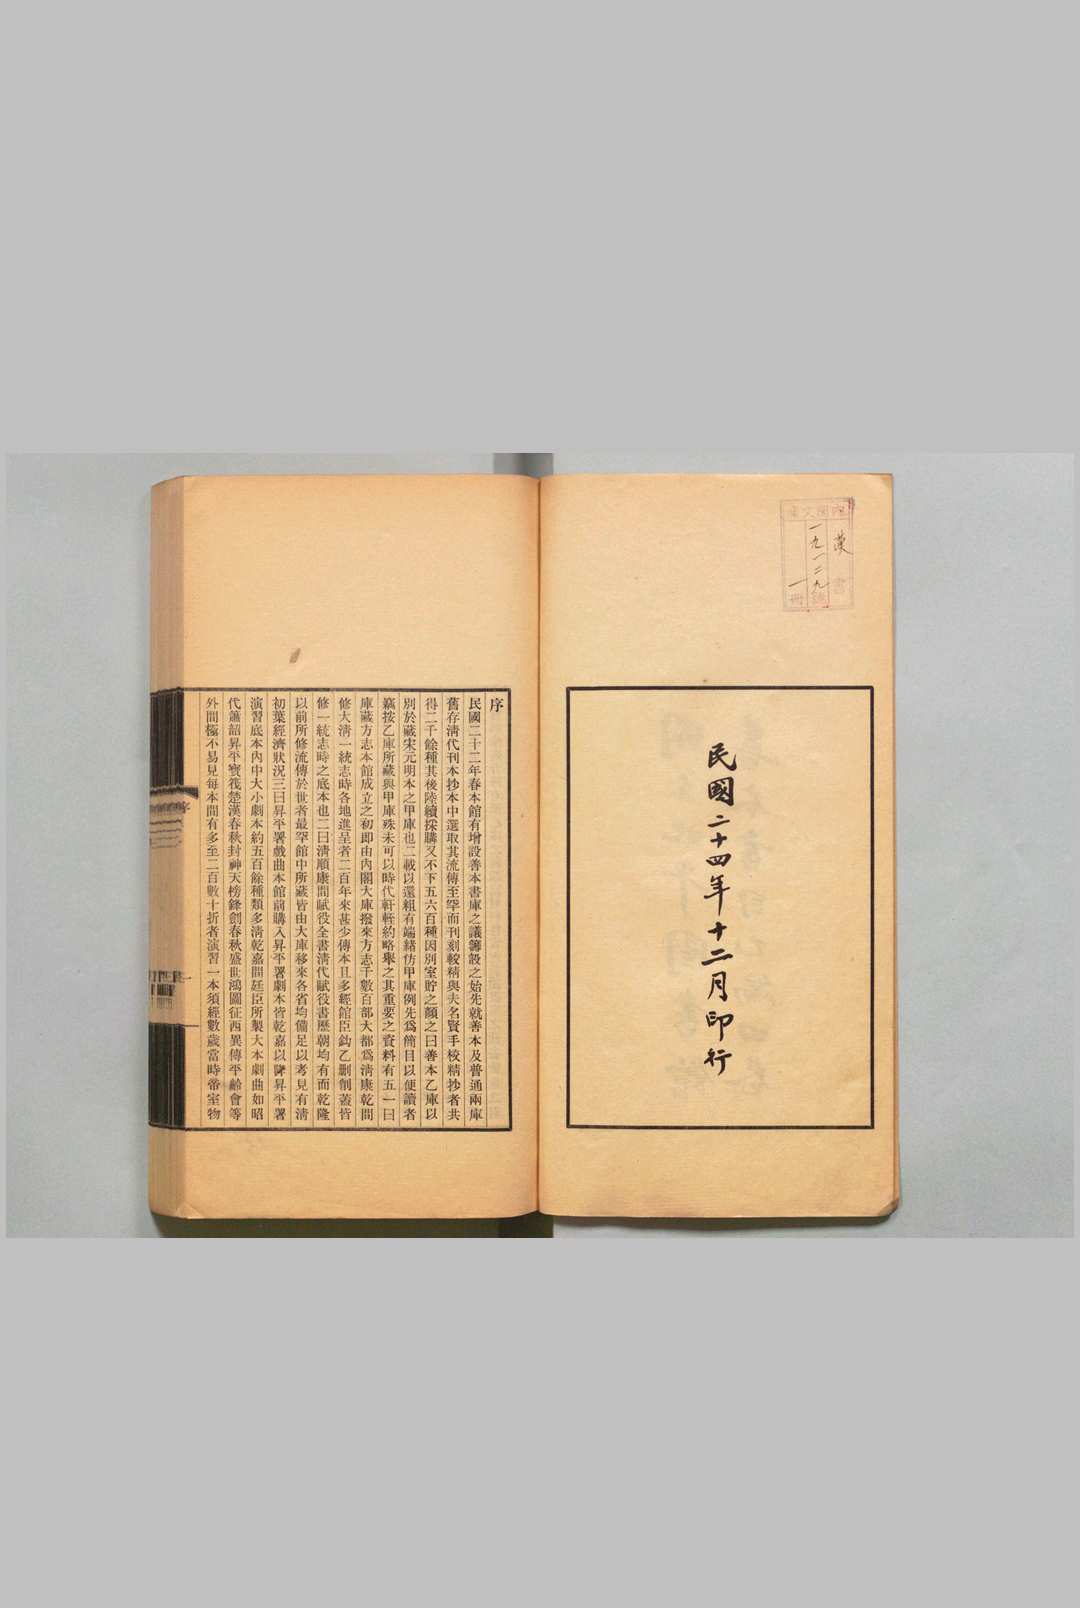 漢書
一九一二九號
一冊
民國二十四年十二月印行
序
民國二十二年春本館有增設善本書庫之議籌設之始先就善本及普通兩庫
舊存淸代刊本抄本中選取其流傳至罕而刊刻較精與夫名賢手校精抄者共
得二千餘種其後陸續採購又不下五六百種因別室貯之顏之曰善本乙庫以
別於藏宋元明本之甲庫也二載以還粗有端緖仿甲庫例先爲簡目以便讀者
竊按乙庫所藏與甲庫殊未可以時代軒輊約略舉之其重要之資料有五一曰
庫藏方志本館成立之初即由內閣大庫撥來方志千數百部大都爲淸康乾間
修大淸一統志時各地進呈者二百年來甚少傳本且多經館臣鈎乙刪削蓋皆
修一統志時之底本也二曰淸順康間賦役全書淸代賦役書歷朝均有而乾隆
以前所修流傳於世者最罕館中所藏皆由大庫移來各省均備足以考見有淸
初葉經濟狀況三曰昇平署戲曲本館前購入昇平署劇本皆乾嘉以降昇平署
演習底本內中大小劇本約五百餘種類多淸乾嘉間廷臣所製大本劇曲如昭
代簫韶昇平寶筏楚漢春秋封神天榜鋒劍春秋盛世鴻圖征西異傳平齡會等
外間極不易見每本間有多至二百數十折者演習一本須經數歲當時帝室物